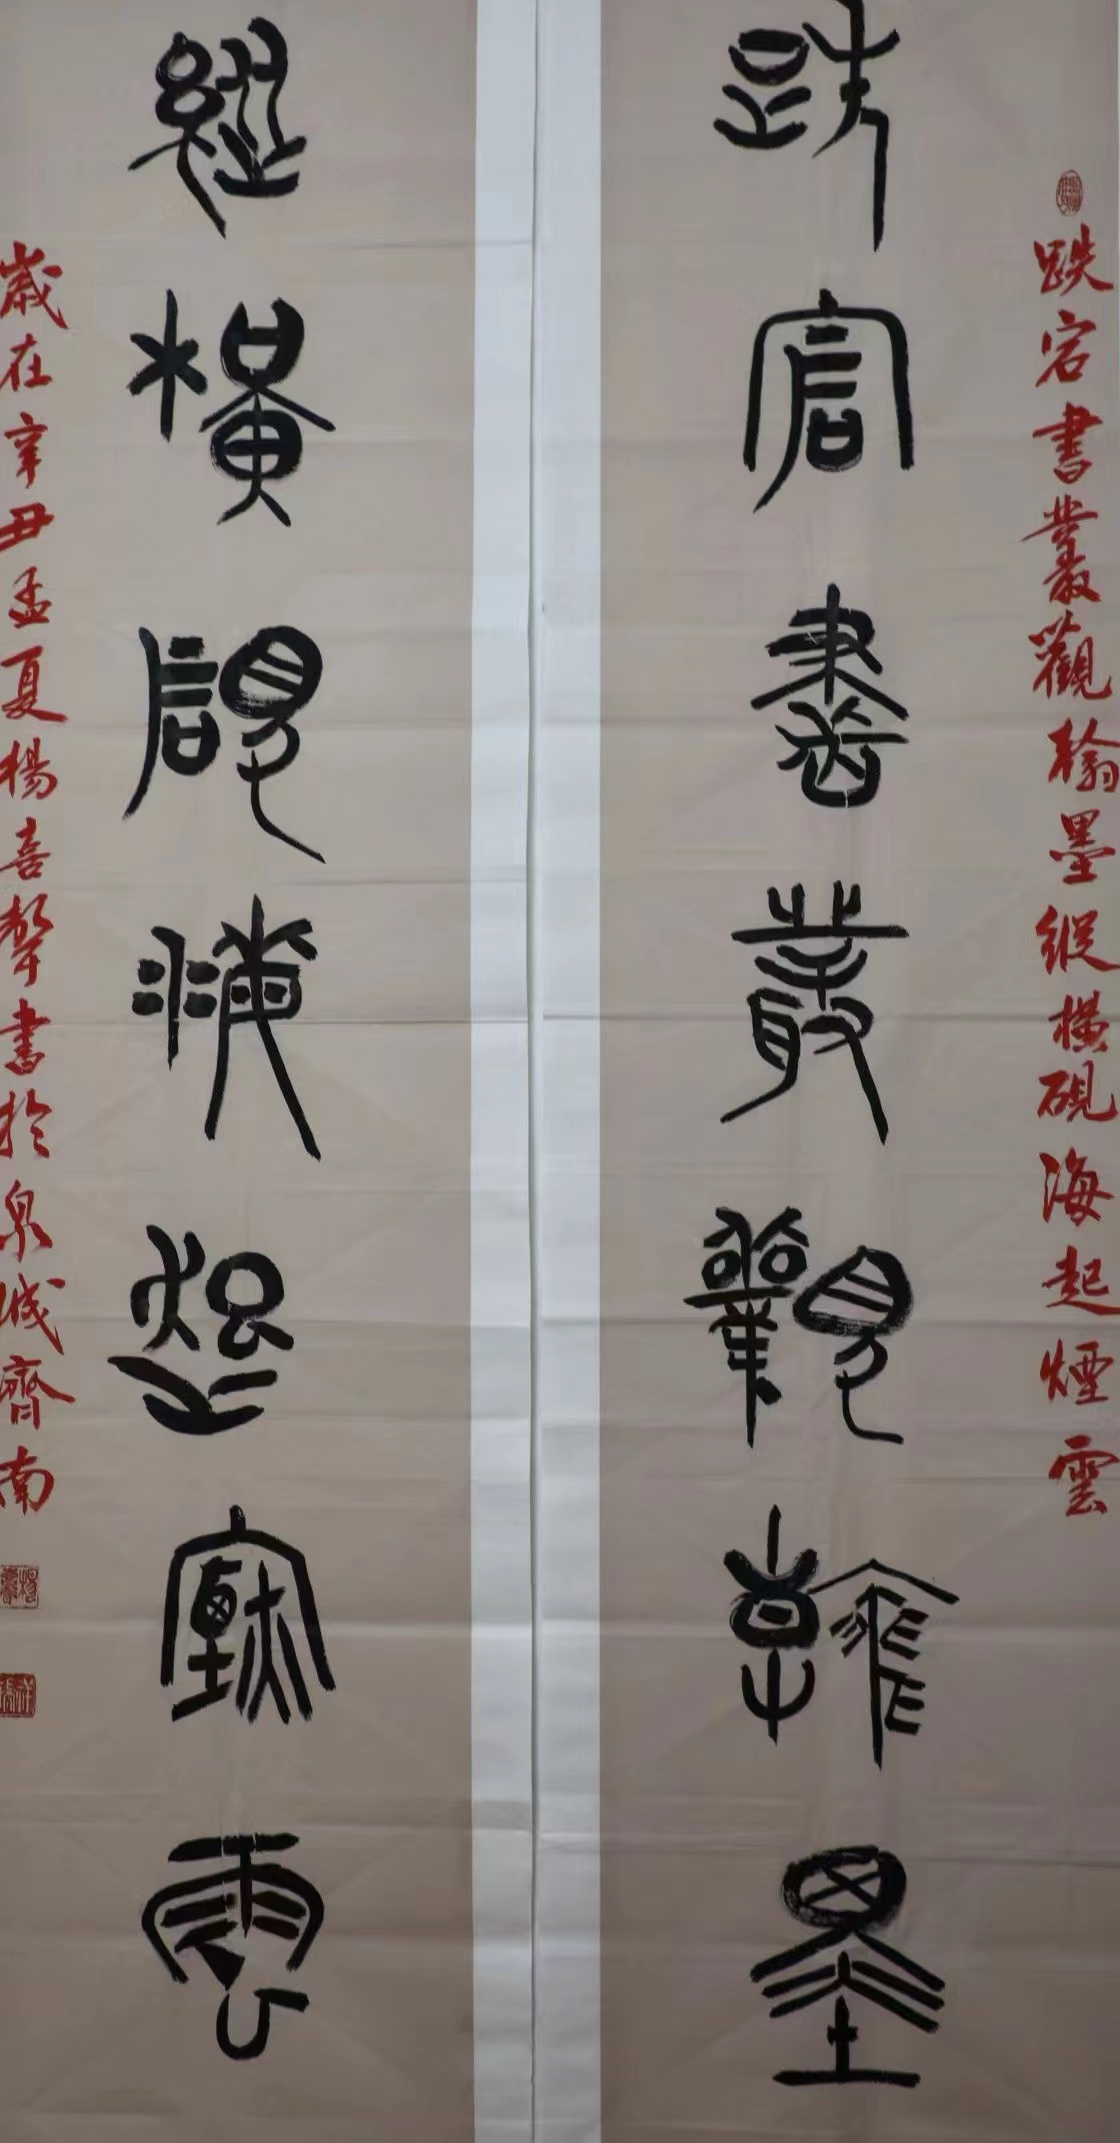 跌宕書叢觀翰墨縱橫硯海起煙雲
跌宕書叢觀翰墨
縱橫硯海起煙雲
歲在辛丑孟夏楊喜聲書於泉城齊南